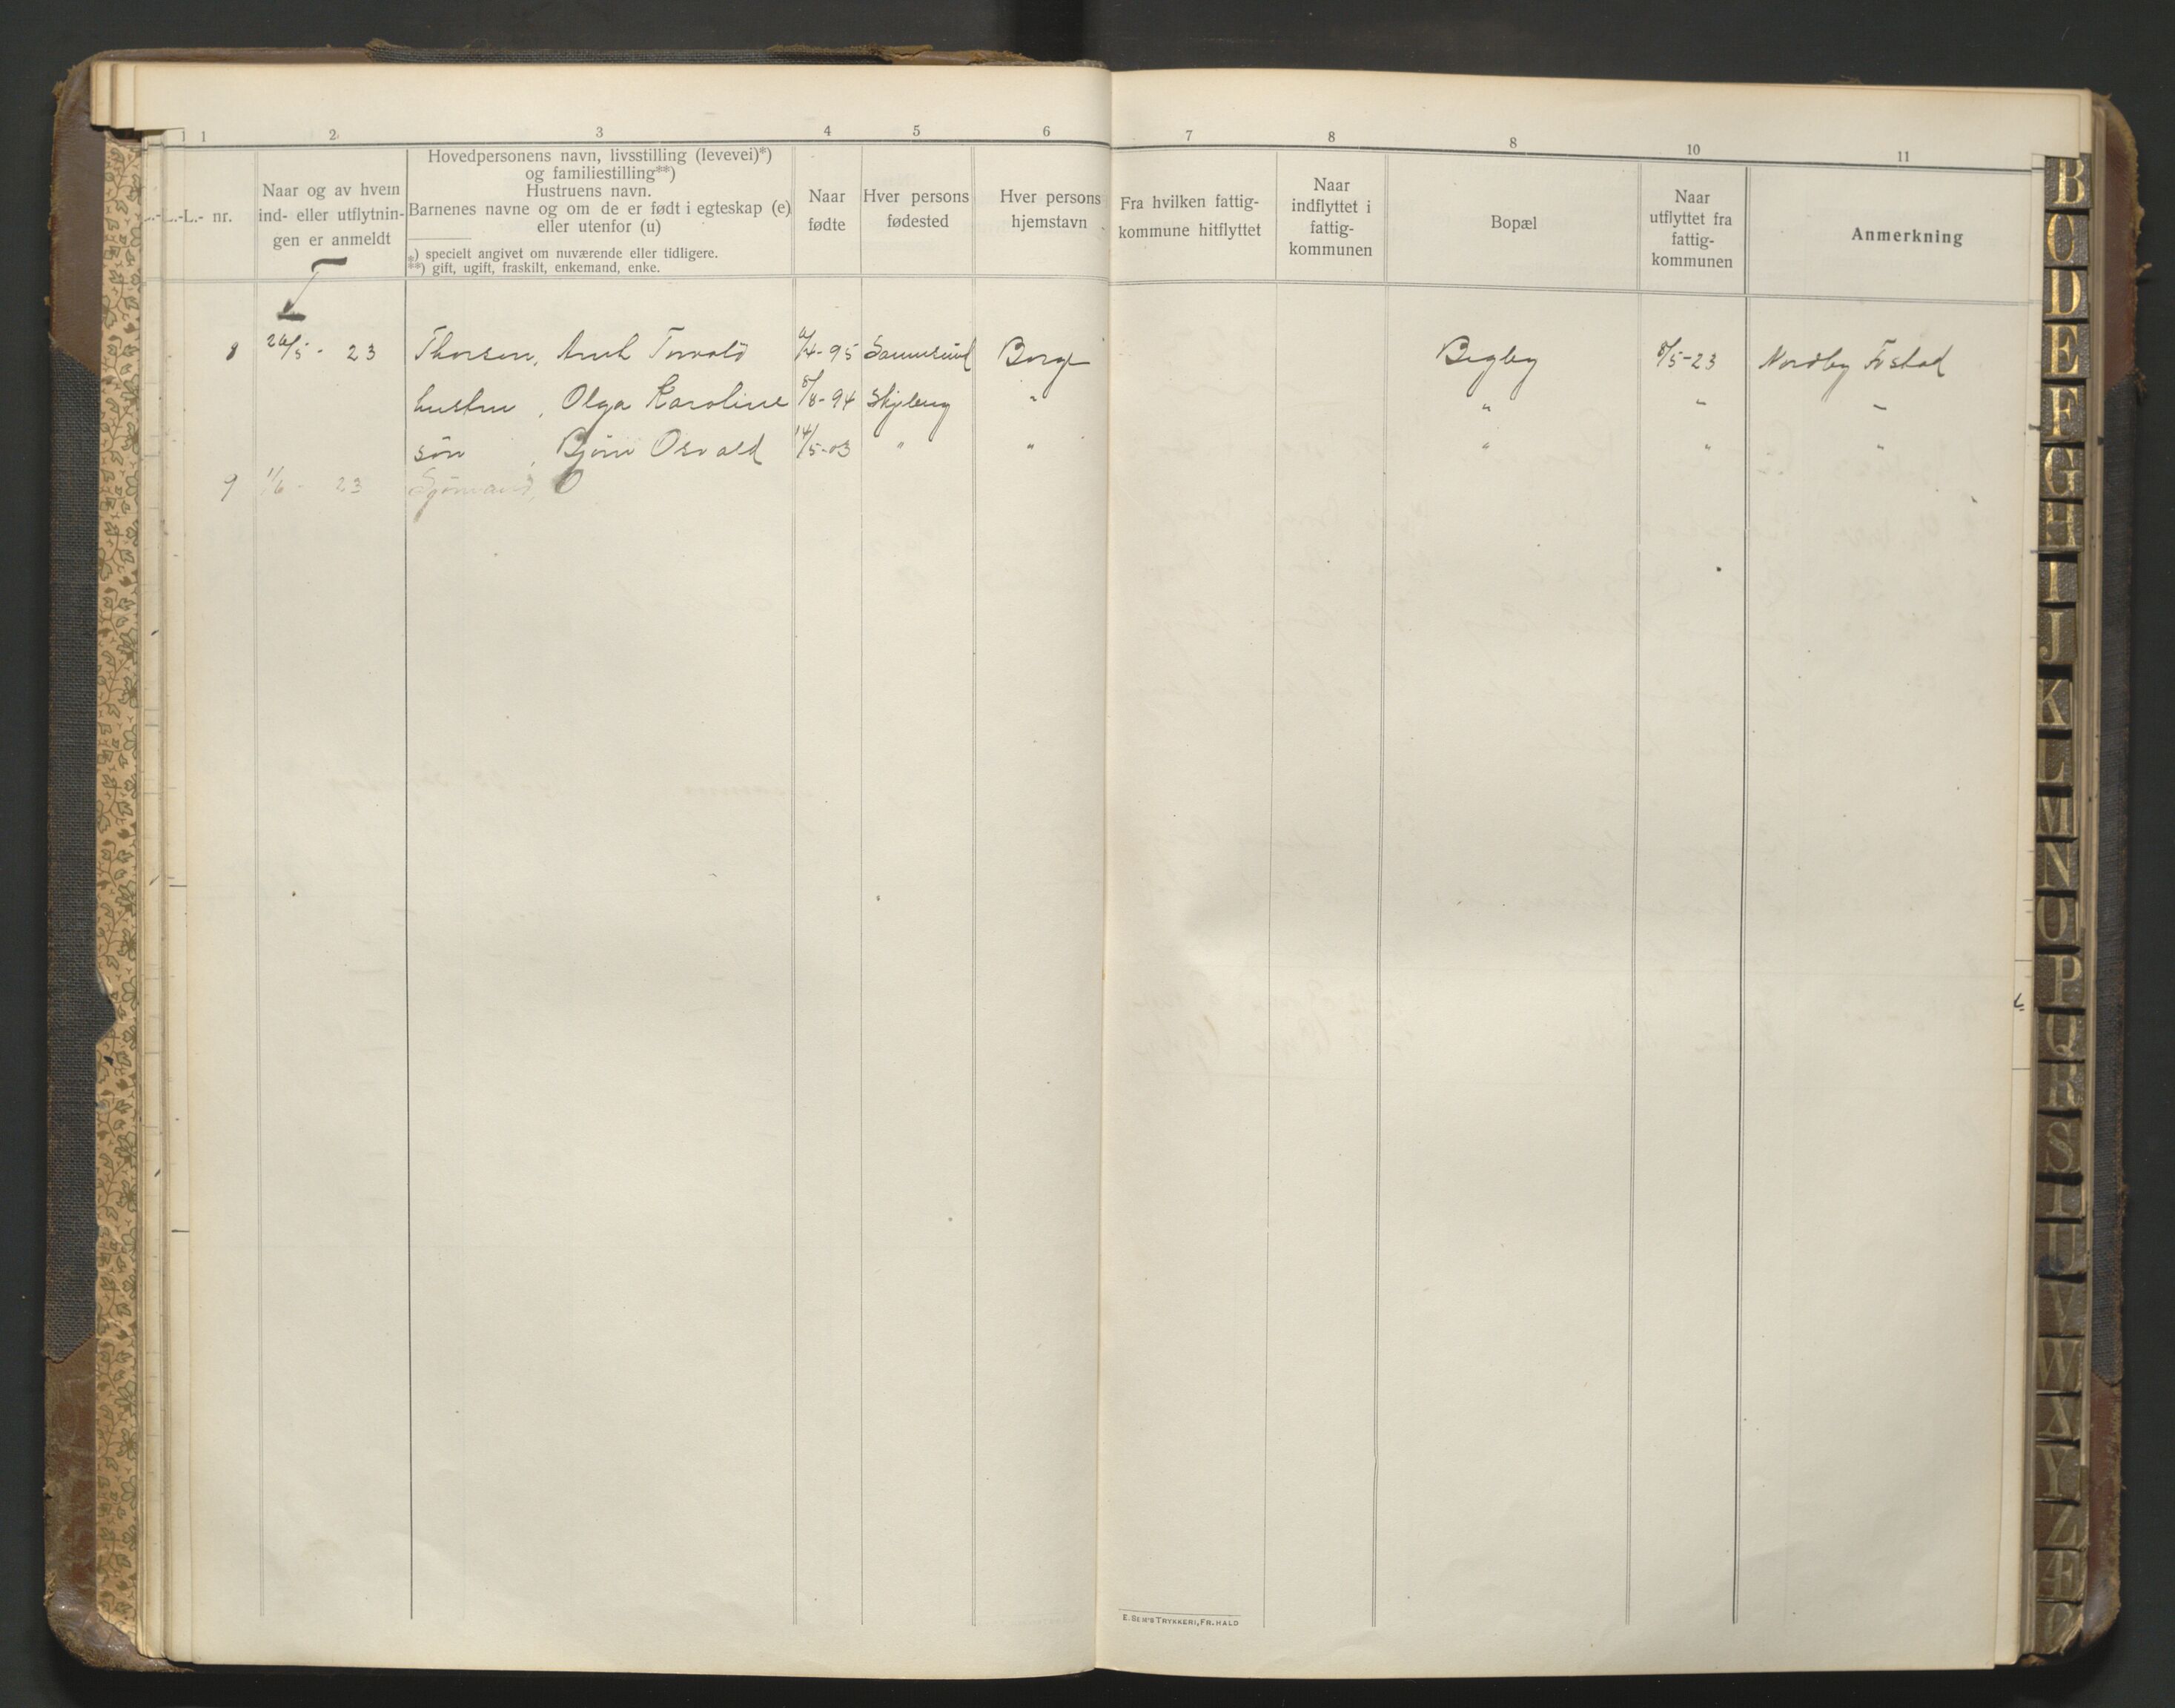 1 1 2 3 4 5 6 7 8 8 10 11
L.- nr.
Naar og av hvem
ind- eller utflytnin-
gen er anmeldt
Hovedpersonens navn, livsstilling (levevei)*)
og familiestilling**)
Hustruens navn.
Barnenes navne og om de er født i egteskap (e)
eller utenfor (u)
*) specielt angivet om nuværende eller tidligere.
**) gift, ugift, fraskilt, enkemand, enke.
Naar
fødte
Hver persons
fødested
Hver persons
hjemstavn
Fra hvilken fattig-
kommune hitflyttet
Naar
indflyttet i
fattig-
kommunen
Bopæl
Naar
utflyttet fra
fattig-
kommunen
Anmerkning
T
8 26/5 - 23 Thorsen, Torvald /4-95 Sannesund Borge Begby 8/5-23 Nordby Fr.stad
hustru, Olga Karoline 8/8-94 Skjeberg " " " "
søn, Bjørn Osvald 14/5-03 " " " " "
9 1/6 - 23
E. SEM'S TRYKKERI, FR.HALD
B
C
D
E
F
G
H
I
J
K
L
M
N
O
P
Q
R
S
T
U
V
W
X
Y
Z
Æ
Ø